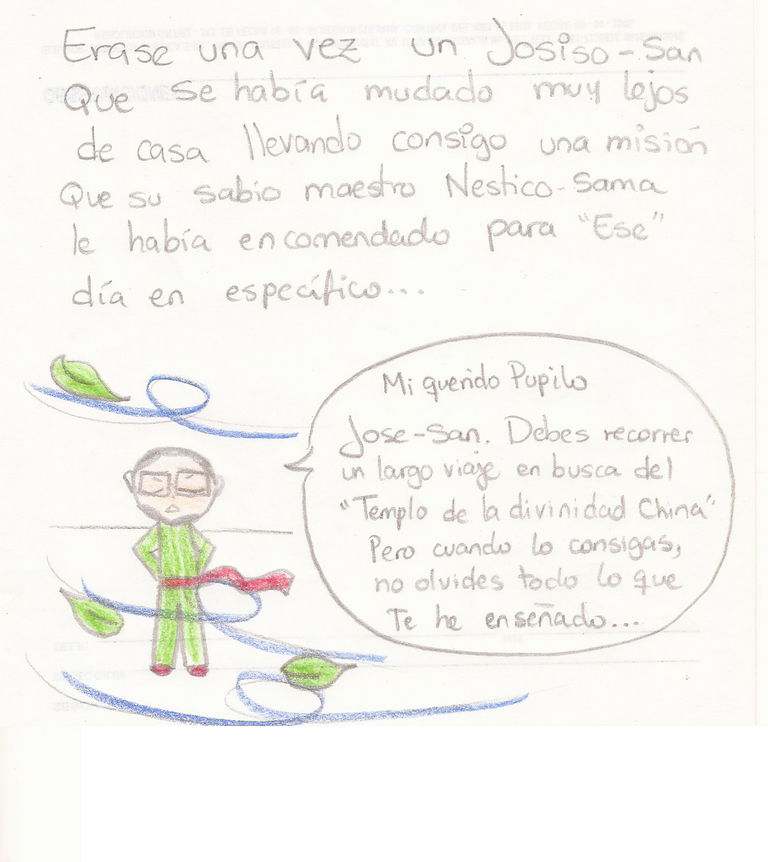 Erase una vez un Josiso-San
Que se había mudado muy lejos
de casa llevando consigo una misión
Que su sabio maestro Nestico-Sama
le había encomendado para "Ese"
día en específico...
Mi querido Pupilo
Jose-San. Debes recorrer
un largo viaje en busca del
"Templo de la divinidad China"
Pero cuando lo consigas,
no olvides todo lo que
Te he enseñado...